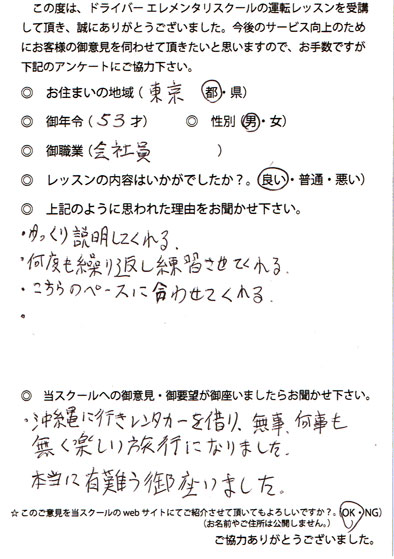 この度は、ドライバー エレメンタリスクールの運転レッスンを受講
して頂き、誠にありがとうございました。今後のサービス向上のため
にお客様の御意見を伺わせて頂きたいと思いますので、お手数ですが
下記のアンケートにご協力下さい。
◎ お住まいの地域（東京 都・県）
◎ 御年令（53才） ◎ 性別 男・女）
◎ 御職業（会社員 ）
◎ レッスンの内容はいかがでしたか？。（良い・普通・悪い）
◎ 上記のように思われた理由をお聞かせ下さい。
・ゆっくり説明してくれる。
・何度も繰り返し練習させてくれる。
・こちらのペースに合わせてくれる。
。
◎ 当スクールへの御意見・御要望が御座いましたらお聞かせ下さい。
・沖縄に行きレンタカーを借り、無事、何事も
無く楽しい旅行になりました。
本当に有難う御座いました。
☆このご意見を当スクールの web サイトにてご紹介させて頂いてもよろしいですか？。（OK・NG）
（お名前やご住所は公開しません。）
ご協力ありがとうございました。